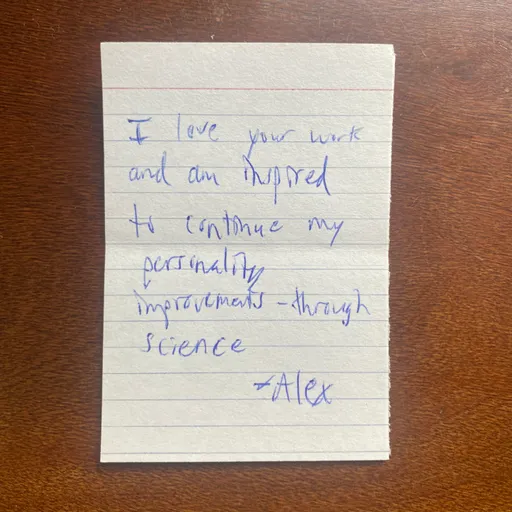 I love your work
and am inspired
to continue my
personality
improvements - through
science
- Alex